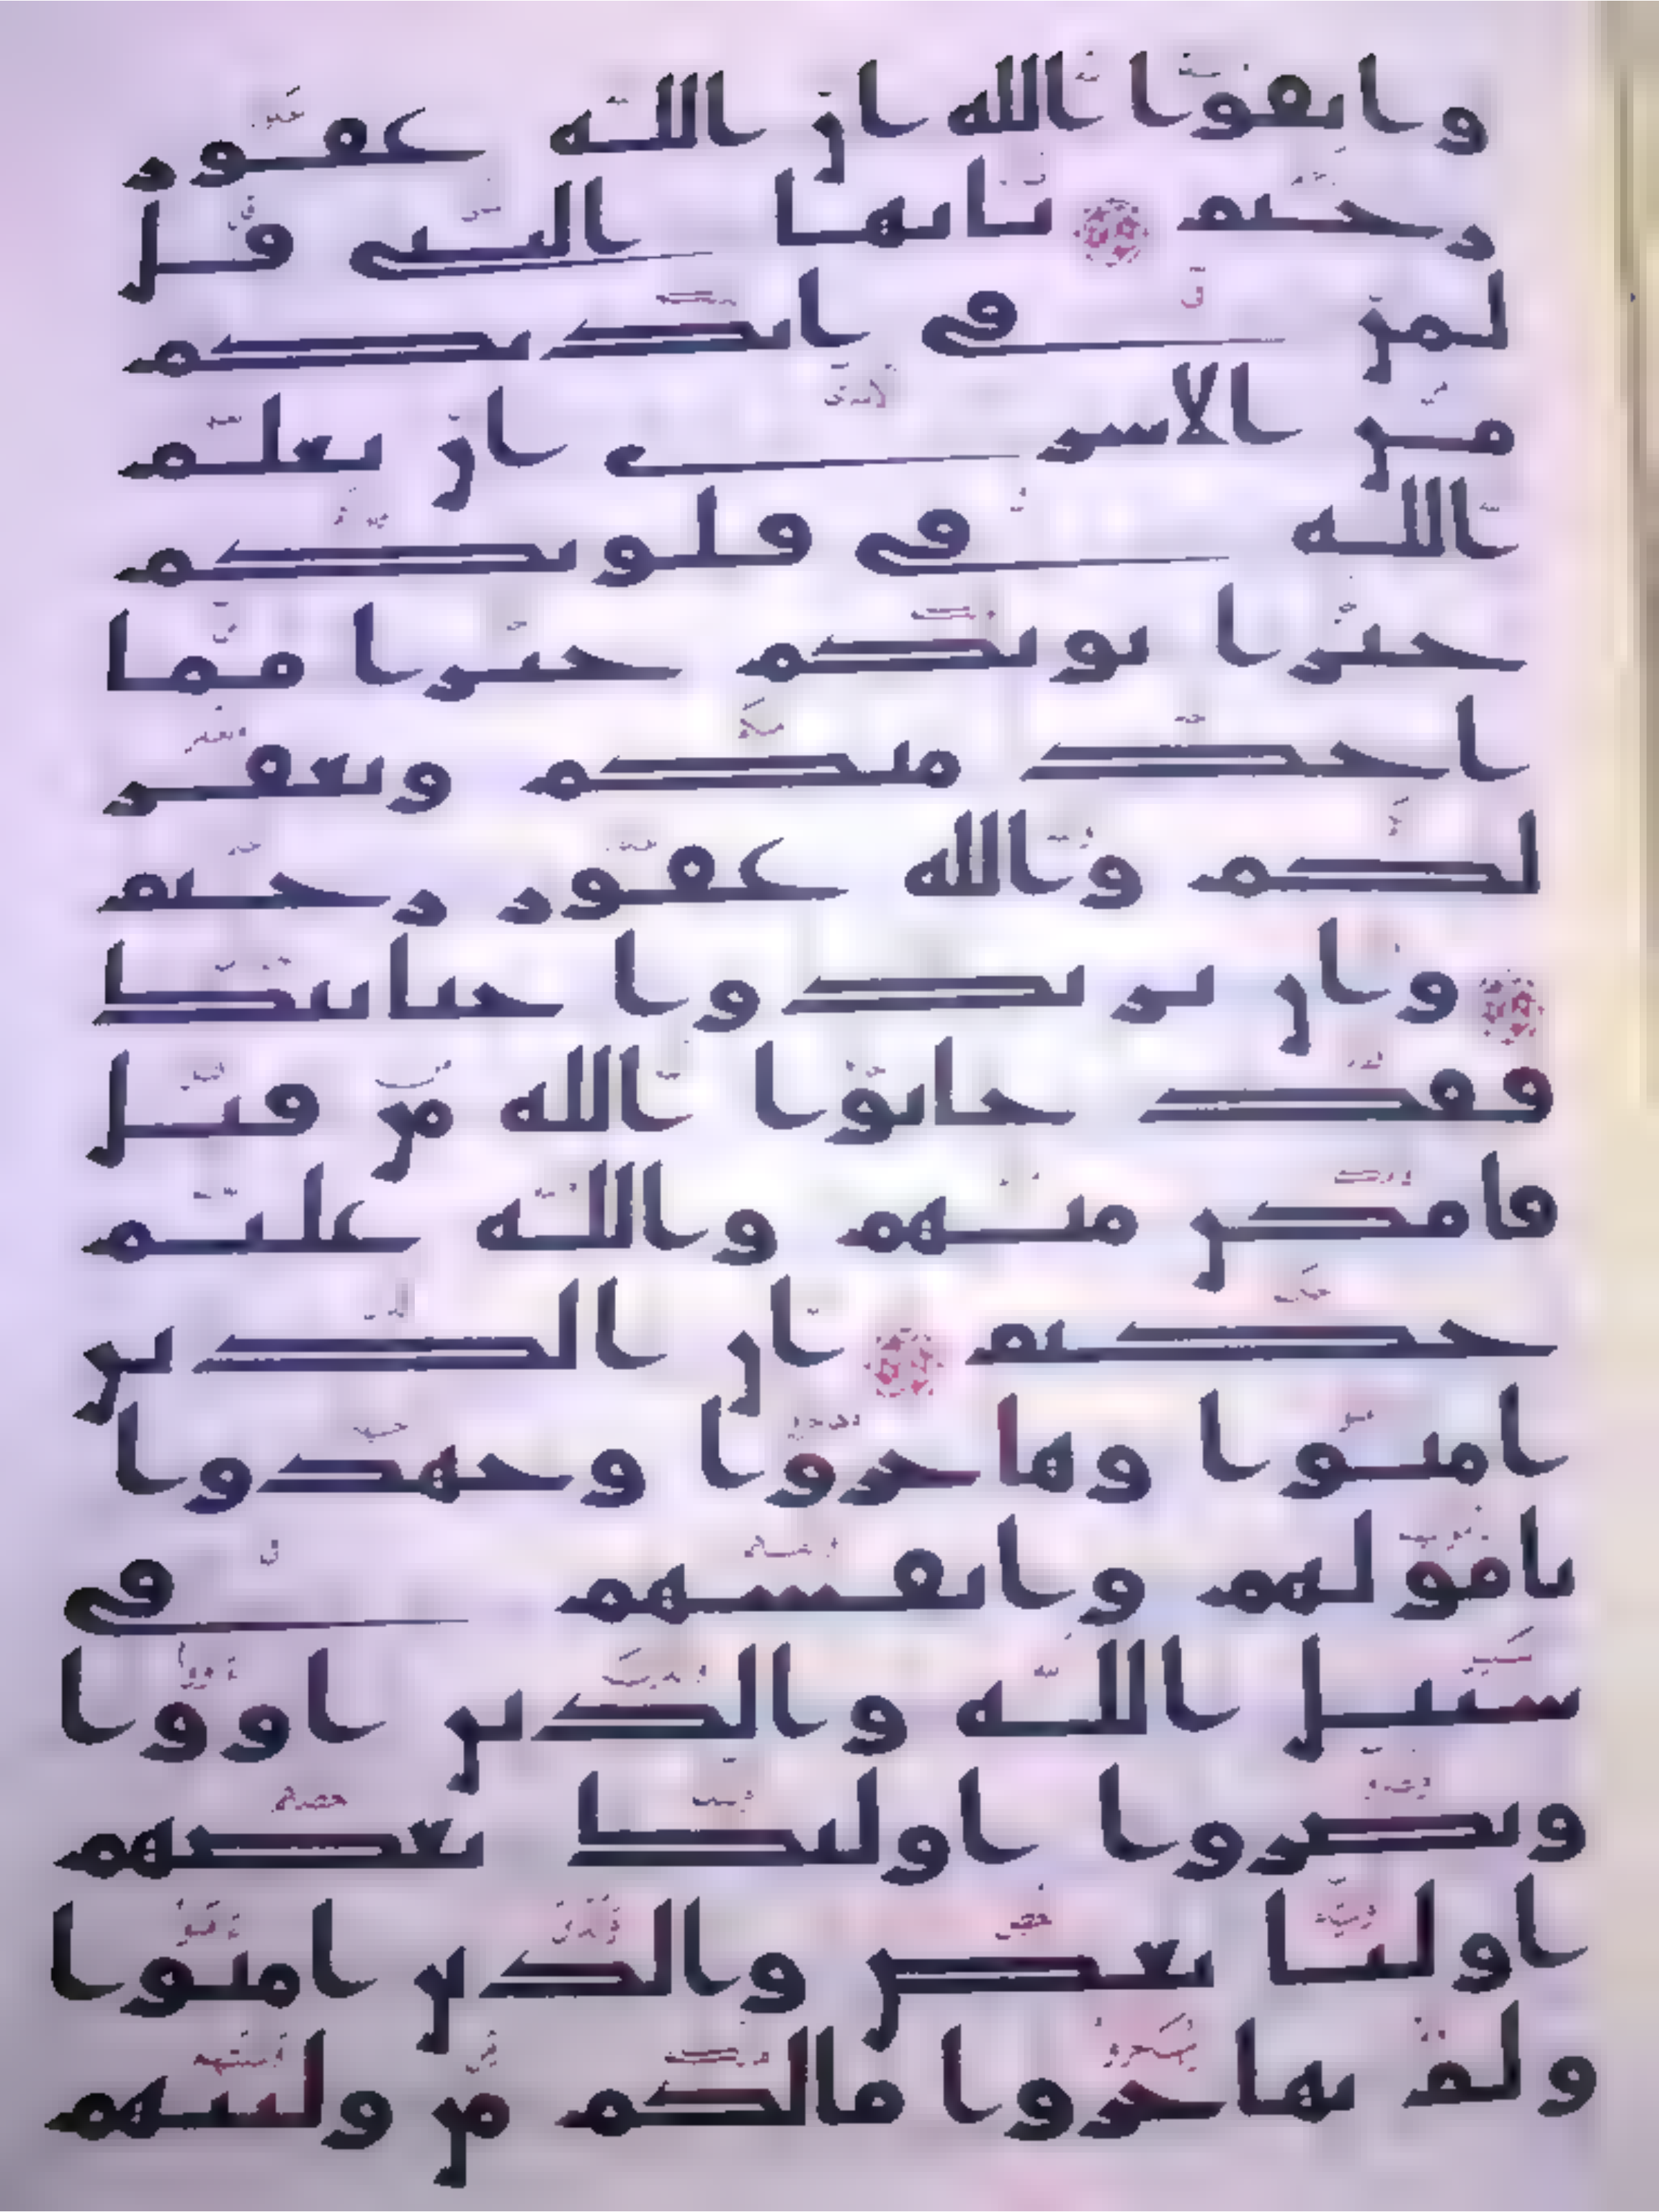 واتقوا الله ان الله غفور
رحيم يايها النبى قل
لمن فى ايديكم
من الاسرى ان يعلم
الله فى قلوبكم
خيرا يوتكم خيرا مما
اخذ منكم ويغفر
لكم والله غفور رحيم
وان يريدوا خيانتك
فقد خانوا الله من قبل
فامكن منهم والله عليم
حكيم ان الذين
امنوا وهاجروا وجهدوا
بامولهم وانفسهم فى
سبيل الله والذين اووا
ونصروا اوليك بعضهم
اوليا بعض والذين امنوا
ولم يهاجروا مالكم من وليتهم